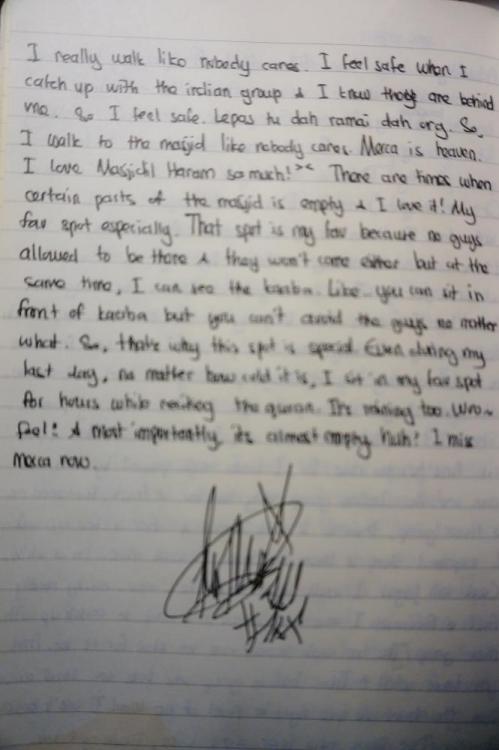 I really walk like nobody cares. I feel safe when I
catch up with the indian group & I know they are behind
me. So I feel safe. Lepas tu dah ramai dah org. So,
I walk to the masjid like nobody cares. Mecca is heaven.
I love Masjidil Haram so much! >< There are times when
certain parts of the masjid is empty & I love it! My
fav spot especially. That spot is my fav because no guys
allowed to be there & they won't come either but at the
same time, I can see the kaaba. Like you can sit in
front of kaaba but you can't avoid the guys no matter
what. So, that's why this spot is special. Even during my
last day, no matter how cold it is, I sit in my fav spot
for hours while reciting the quran. It's raining too.
feel! & most importantly, its almost empty huh! I miss
Mecca now.